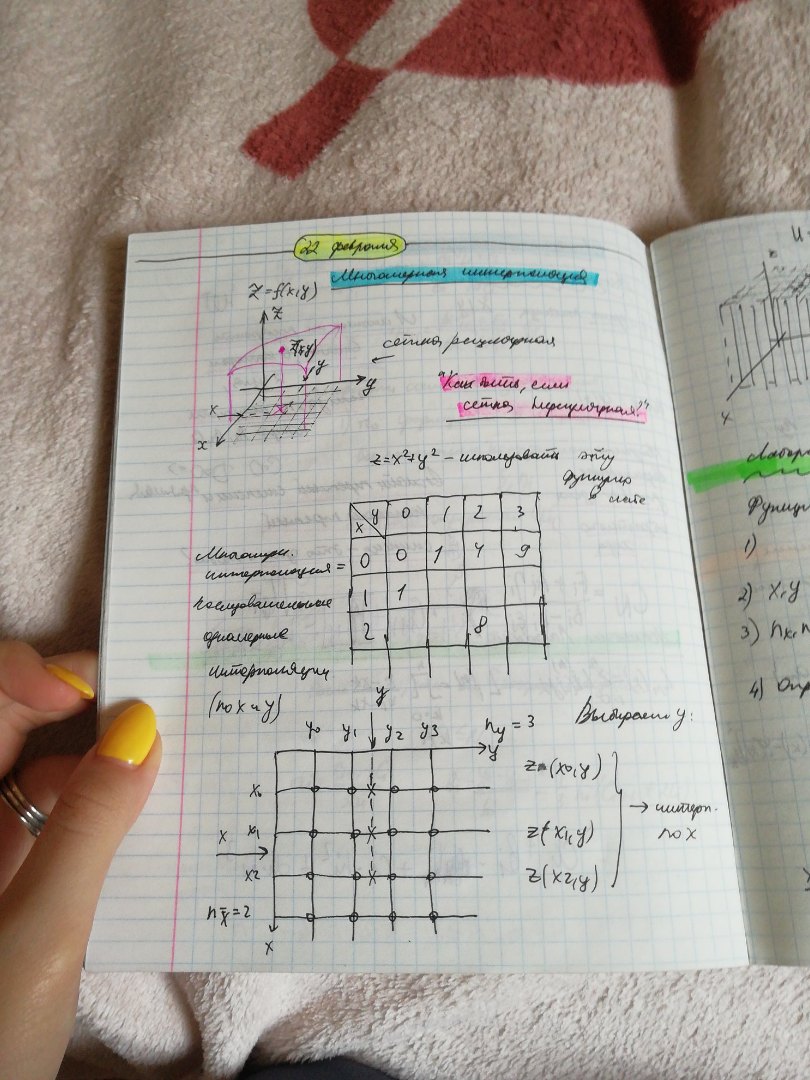 22 февраля
Многомерная интерполяция
z = f(x,y)
z
z(x,y)
y
y
x
x
сетка регулярная
"Как быть, если
сетка нерегулярная?"
z = x² + y² – использовать эту
функцию
в лабе
y 0 1 2 3
x
0 0 1 4 9
1 1
2 8
Многомерн.
интерполяция =
последовательные
одномерные
интерполяции
(по x и y)
y
y₀ y₁ y₂ y₃
y
n_y = 3
x₀
x₁
x
x₂
n_x = 2
x
Выбираем y:
z (x₀,y)
z (x₁,y)
z (x₂,y)
→ интерп.
по x
x
Функци
1)
2) x, y
3)
4) Опр